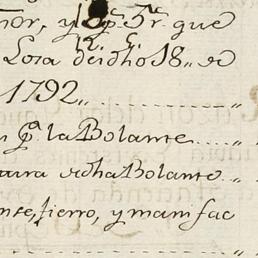 nor, y qe Sr. que
Losa de dho 18,, de
1792
n pa. la Bolante
ara dha Bolante
nte, fierro, y manifac